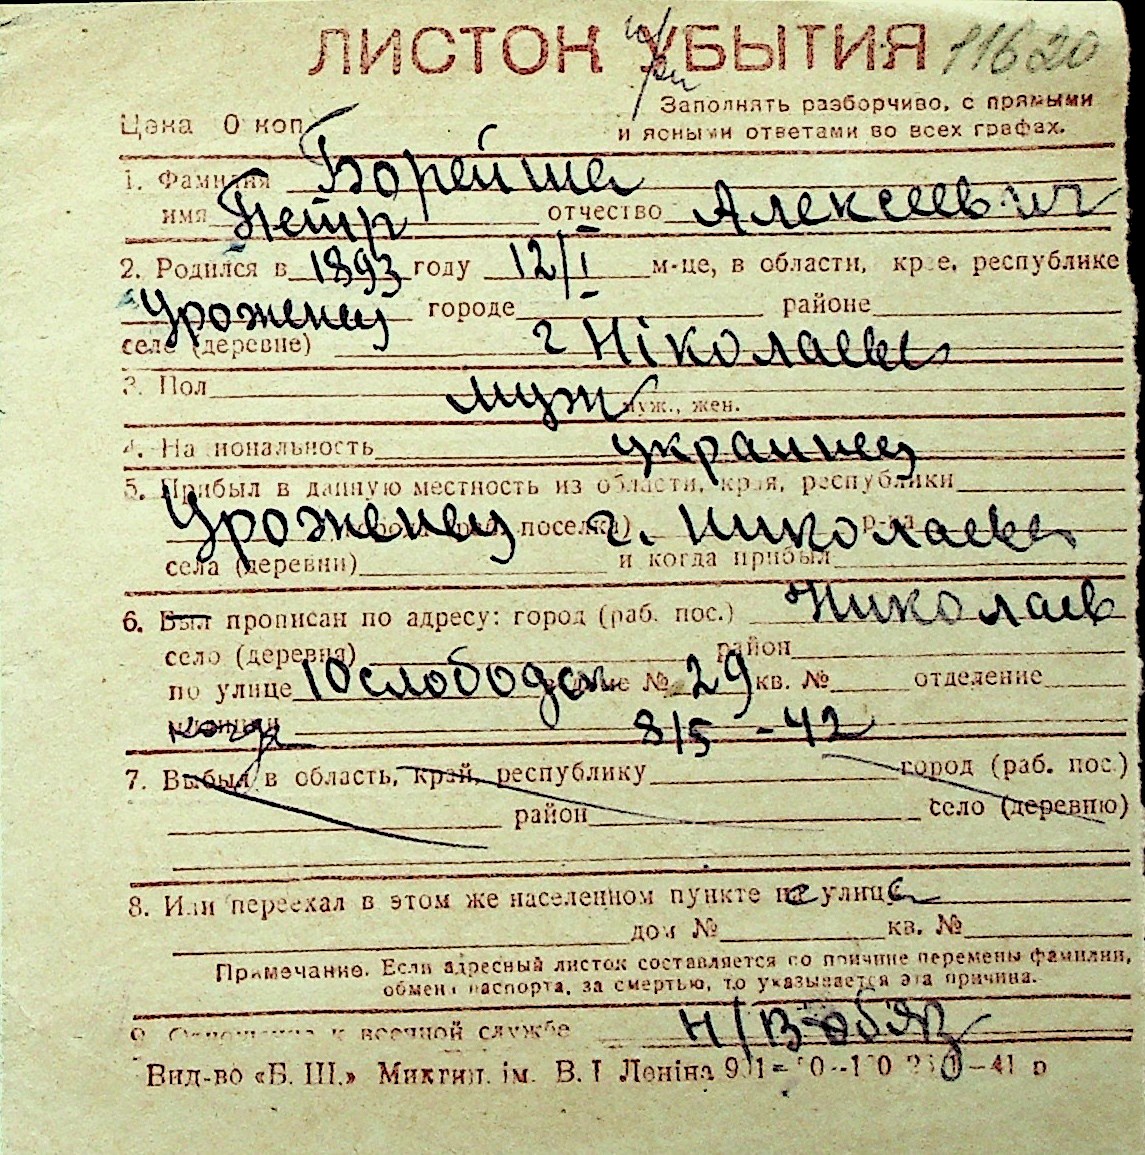 ЛИСТОК УБЫТИЯ 11620
Заполнять разборчиво, с прямыми
Цена 0 коп и ясными ответами во всех графах.
1. Фамилия Борейша
имя Петр отчество Алексеевич
2. Родился в 1893 году 12/I м-це, в области, крае, республике
Уроженец городе районе
селе (деревне) г Ніколаева
3. Пол муж муж., жен.
4. Национальность украинец
5. Прибыл в данную местность из области, края, республики
Уроженец поселка) г. Николаева р-на
села (деревни) и когда прибыл
6. Был прописан по адресу: город (раб. пос.) Николаев
село (деревня) район
по улице 10 слободск № 29 кв. № отделение
когда 8/5 - 42
7. Выбыл в область, край, республику город (раб. пос.)
район село (деревню)
8. Или переехал в этом же населенном пункте улица
дом № кв. №
Примечание. Если адресный листок составляется по причине перемены фамилии,
обмена паспорта, за смертью, то указывается эта причина.
9. Отношение к военной службе Н/В-обяз
Вид-во «Б. Ш.» Микгип. ім. В. І Леніна 41 р